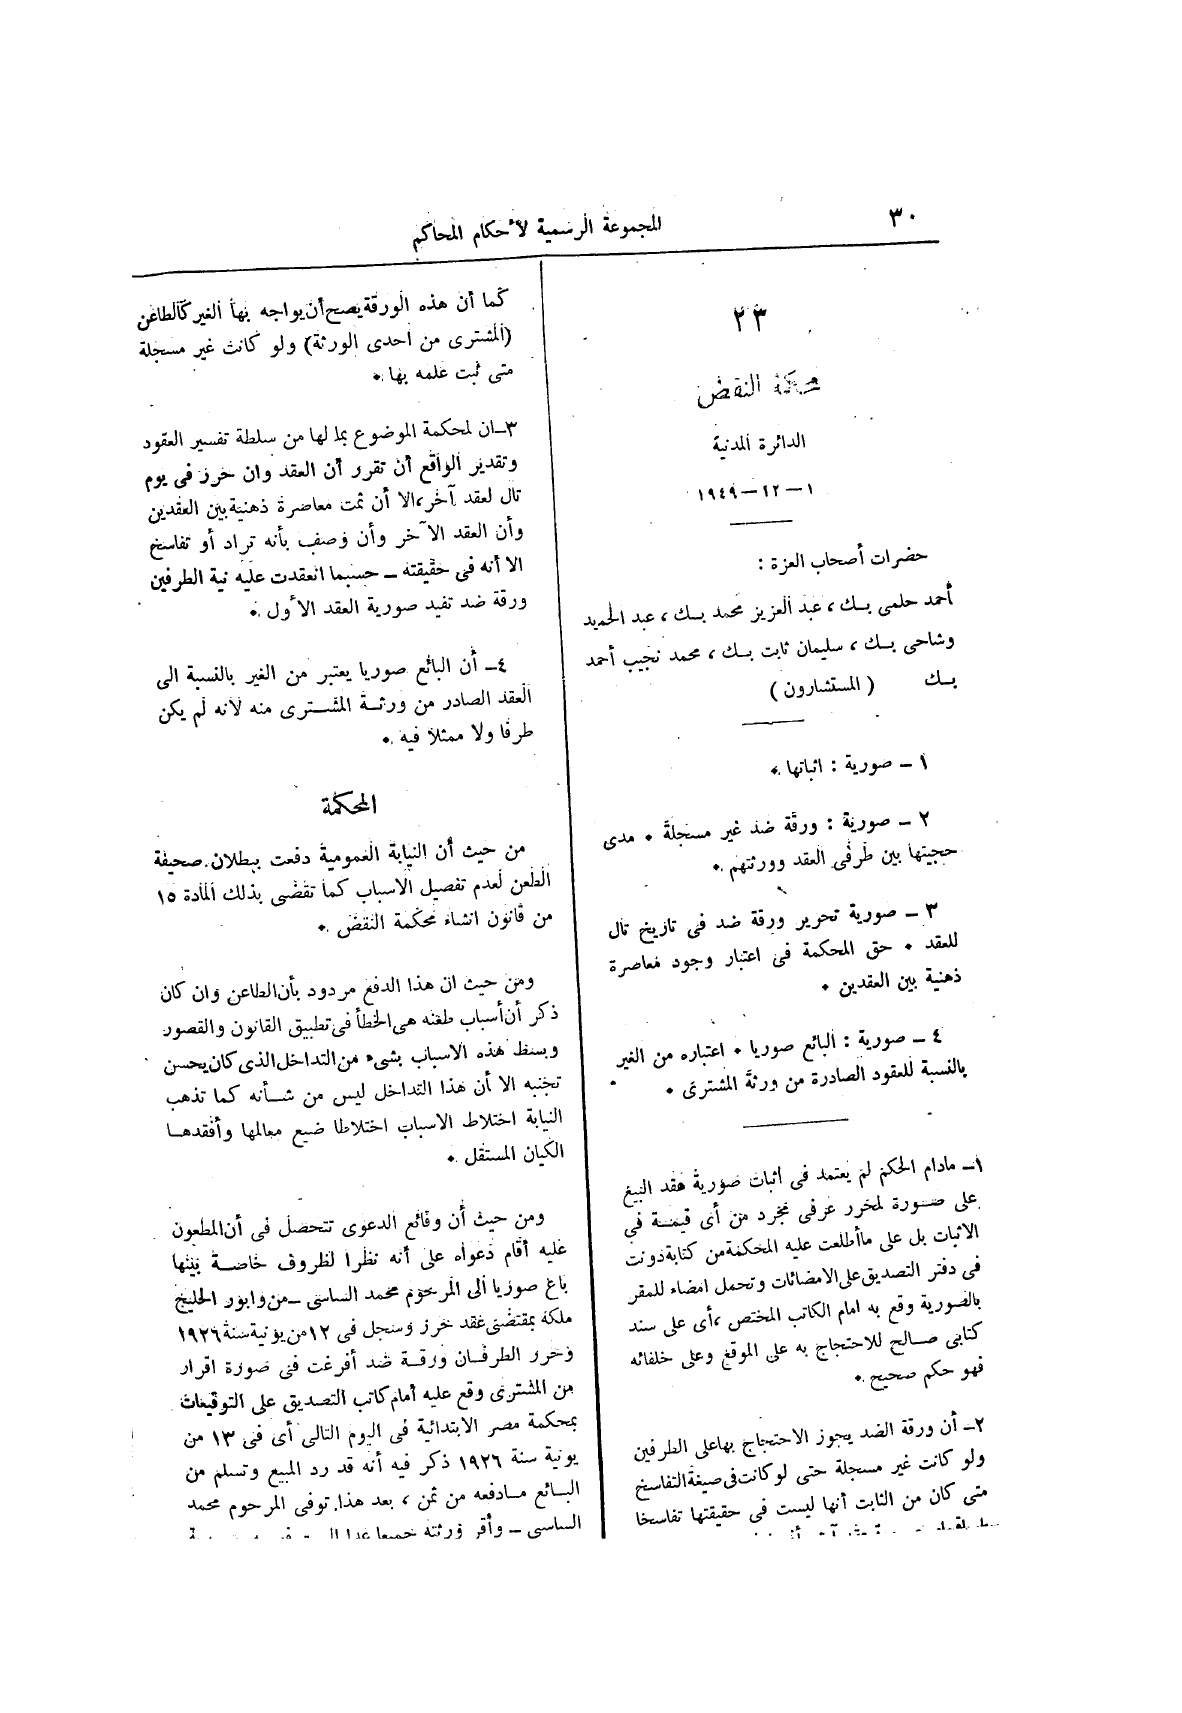 ٣٠
المجموعة الرسمية لأحكام المحاكم
٢٣
محكمة النقض
الدائرة المدنية
١ – ١٢ – ١٩٤٩
حضرات أصحاب العزة :
أحمد حلمى بك ، عبد العزيز محمد بك ، عبد الحميد
وشاحى بك ، سليمان ثابت بك ، محمد نجيب أحمد
بك ( المستشارون )
١ – صورية : اثباتها .
٢ – صورية : ورقة ضد غير مسجلة . مدى
حجيتها بين طرفى العقد وورثتهم .
٣ – صورية تحرير ورقة ضد فى تاريخ تال
للعقد . حق المحكمة فى اعتبار وجود معاصرة
ذهنية بين العقدين .
٤ – صورية : البائع صوريا . اعتباره من الغير
بالنسبة للعقود الصادرة من ورثة المشترى .
١– مادام الحكم لم يعتمد فى اثبات صورية عقد البيع
على صورة لمحرر عرفى مجرد من أى قيمة فى
الاثبات بل على ماأطلعت عليه المحكمة من كتابة دونت
فى دفتر التصديق على الامضائات وتحمل امضاء للمقر
بالصورية وقع به امام الكاتب المختص ، أى على سند
كتابى صالح للاحتجاج به على الموقع وعلى خلفائه
فهو حكم صحيح .
٢– أن ورقة الضد يجوز الاحتجاج بها على الطرفين
ولو كانت غير مسجلة حتى لو كانت فى صيغة التفاسخ
متى كان من الثابت أنها ليست فى حقيقتها تفاسخا
كما أن هذه الورقة يصح أن يواجه بها الغير كالطاعن
(المشترى من احدى الورثة) ولو كانت غير مسجلة
متى ثبت علمه بها .
٣–ان لمحكمة الموضوع بما لها من سلطة تفسير العقود
وتقدير الواقع أن تقرر أن العقد وان حرر فى يوم
تال لعقد آخر ، الا أن ثمت معاصرة ذهنية بين العقدين
وأن العقد الآخر وأن وصف بأنه تراد أو تفاسخ
الا أنه فى حقيقته – حسبما انعقدت عليه نية الطرفين
ورقة ضد تفيد صورية العقد الأول .
٤– أن البائع صوريا يعتبر من الغير بالنسبة الى
العقد الصادر من ورثة المشترى منه لأنه لم يكن
طرفا ولا ممثلا فيه .
المحكمة
من حيث أن النيابة العمومية دفعت ببطلان صحيفة
الطعن لعدم تفصيل الاسباب كما تقضى بذلك المادة ١٥
من قانون انشاء محكمة النقض .
ومن حيث ان هذا الدفع مردود بأن الطاعن وان كان
ذكر أن أسباب طعنه هى الخطأ فى تطبيق القانون والقصور
وبسط هذه الاسباب بشىء من التداخل الذى كان يحسن
تجنبه الا أن هذا التداخل ليس من شأنه كما تذهب
النيابة اختلاط الاسباب اختلاطا ضيع معالمها وأفقدها
الكيان المستقل .
ومن حيث أن وقائع الدعوى تتحصل فى أن المطعون
عليه أقام دعواه على أنه نظرا لظروف خاصة بينها
باع صوريا الى المرحوم محمد الساسى – من وابور الحليج
ملكه بمقتضى عقد حرر وسجل فى ١٢ من يونية سنة ١٩٢٦
وحرر الطرفان ورقة ضد أفرغت فى صورة اقرار
من المشترى وقع عليه أمام كاتب التصديق على التوقيعات
بمحكمة مصر الابتدائية فى اليوم التالى أى فى ١٣ من
يونية سنة ١٩٢٦ ذكر فيه أنه قد رد المبيع وتسلم من
البائع مادفعه من ثمن ، بعد هذا توفى المرحوم محمد
الساسى – وأقر ورثته جميعا عدا